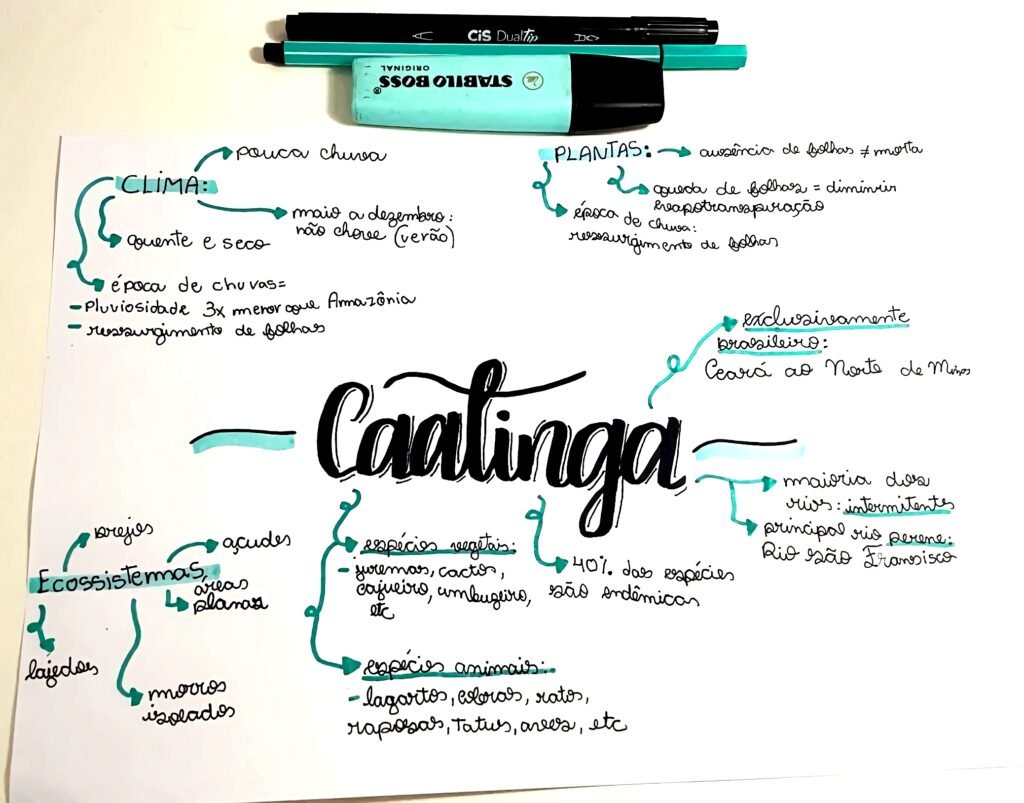 CiS Dualtip
STABILO BOSS
ORIGINAL
CLIMA:
pouca chuva
maio a dezembro:
não chove (verão)
quente e seco
época de chuvas=
- Pluviosidade 3x menor que Amazônia
- ressurgimento de folhas
PLANTAS:
ausência de folhas ≠ morta
queda de folhas = diminuir
evapotranspiração
época de chuva:
ressurgimento de folhas
exclusivamente
brasileiro:
Ceará ao Norte de Minas
Caatinga
maioria dos
rios: intermitentes
principal rio perene:
Rio são Fransisco
Ecossistemas
brejos
açudes
áreas
planas
lajedos
morros
isolados
espécies vegetais:
- juremas, cactos,
cajueiro, umbuzeiro,
etc
40% das espécies
são endêmicas
espécies animais:
- lagartos, cobras, ratos,
raposas, tatus, aves, etc